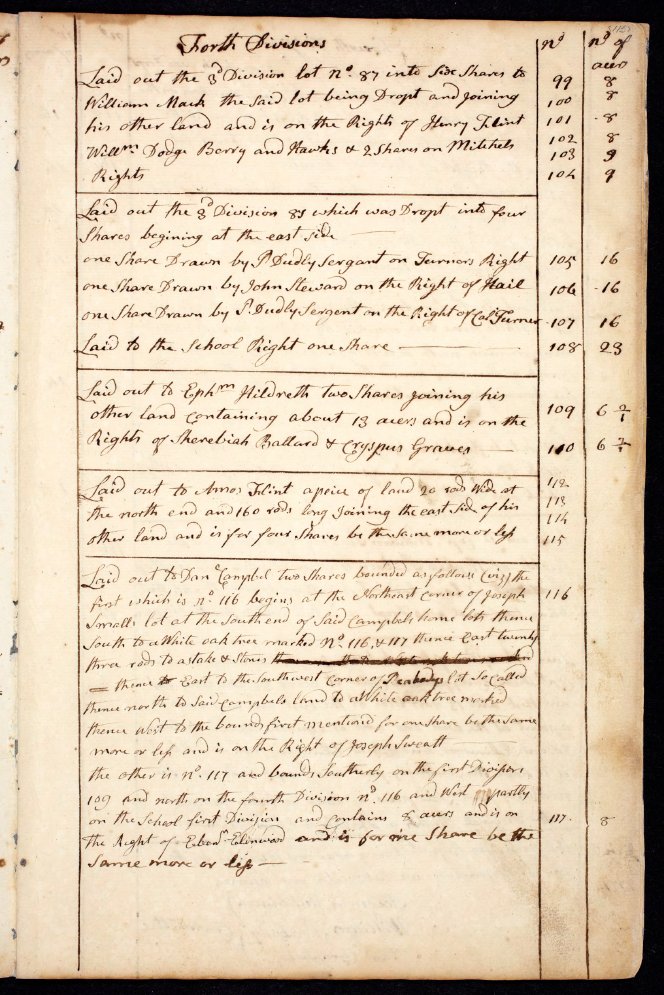 Forth Divisions
nº
nº of
acers
Laid out the 3d Division lot nº. 87 into Six Shares to 99 8
William Mack the Said lot being Dropt and joining 100 8
his other land and is on the Rights of Henry Flint 101 8
Willm. Dodge Berry and Hawks & 2 Shares on Mitchels 102 8
103 9
Rights 104 9
Laid out the 3d Division 81 which was Dropt into four
Shares begining at the east Side
one Share Drawn by P. Dudly Sergant on Turners Right 105 16
one Share Drawn by John Steward on the Right of Hail 106 16
one Share Drawn by P. Dudly Sergent on the Right of Cal. Turner 107 16
Laid to the School Right one Share 108 23
Laid out to Ephm Hildreth two Shares joining his
other land containing about 13 acers and is on the 109 6 2/1
Rights of Sherebiah Ballard & Cryspus Graves 110 6 2/1
Laid out to Amos Flint a peice of land 20 rods Wide at 112
the north end and 160 rods long Joining the east Side of his 113
114
other land and is for four Shares be the Same more or less 115
Laid out to Danl Campbel two Shares bounded as follows (viz) the
first which is nº. 116 begins at the Northeast Corner of Joseph 116
Smalls lot at the South end of Said Campbels home lots thence
South to a White oak tree marked Nº. 116, & 117 thence East twenty
three rods to a Stake & Stones
thence East to the Southwest Corner of Peabodys lot So Called
thence north to Said Campbels land to a White oak tree marked
thence West to the bounds first mentioned for one Share be the Same
more or less and is on the Right of Joseph Sweatt
the other is nº. 117 and bounds Southerly on the first Division
109 and north on the fourth Division nº. 116 and West partly
on the School first Division and Contains 8 acers and is on 117 8
the Right of Ebenr. and is for one Share be the
Same more or less